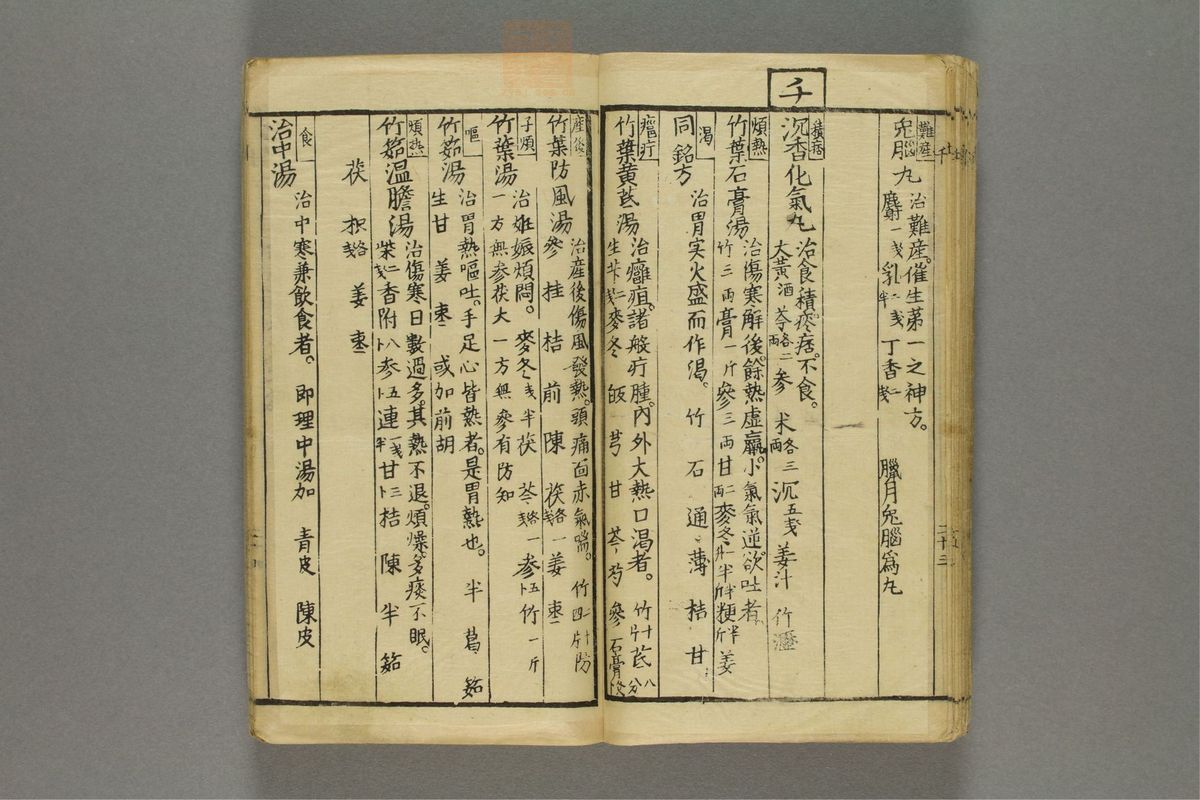 難産
兎脳丸 治難産。催生第一之神方。 臘月兎腦爲丸
麝一戔 乳二戔半 丁香一戔
千
積痞
沉香化氣丸 治食積疼痞。不食。
大黄酒 芩各二両 参 朮各三両 沉五戔 姜汁 竹瀝
煩熱
竹葉石膏湯 治傷寒解後。餘熱虚羸。小氣氣逆。欲吐者。
竹三両 膏一斤 參三両 甘二両 麥冬一升半 半半斤 粳半斤 姜
渇
同銘方 治胃実火盛而作渇。 竹 石 通 薄 桔 甘
癰疔
竹葉黄芪湯 治癰疽。諸般疔腫。内外大熱口渇者。 竹十片 芪八分
生芐二戔 麥冬 皈 芎 甘 芩 芍 參 石膏
産後
竹葉防風湯 治産後傷風發熱。頭痛面赤氣喘。 竹二十四片 防
參 桂 桔 前 陳 茯各一戔 姜 枣
子煩
竹葉湯 治姙娠煩悶。 麥冬戔半 茯 芩各一戔 参五卜 竹一斤
一方無参茯大 一方無參有防知
嘔
竹筎湯 治胃熱嘔吐。手足心皆熱者。是胃熱也。 半 葛 筎
生甘 姜 枣 或加前胡
煩熱
竹筎温膽湯 治傷寒日數過多。其熱不退。煩燥。多痰不眠。
柴二戔 香附八卜 参五卜 連一戔半 甘三卜 桔 陳 半 筎
茯 枳各戔 姜 枣
食
治中湯 治中寒兼飲食者。 即理中湯加 青皮 陳皮